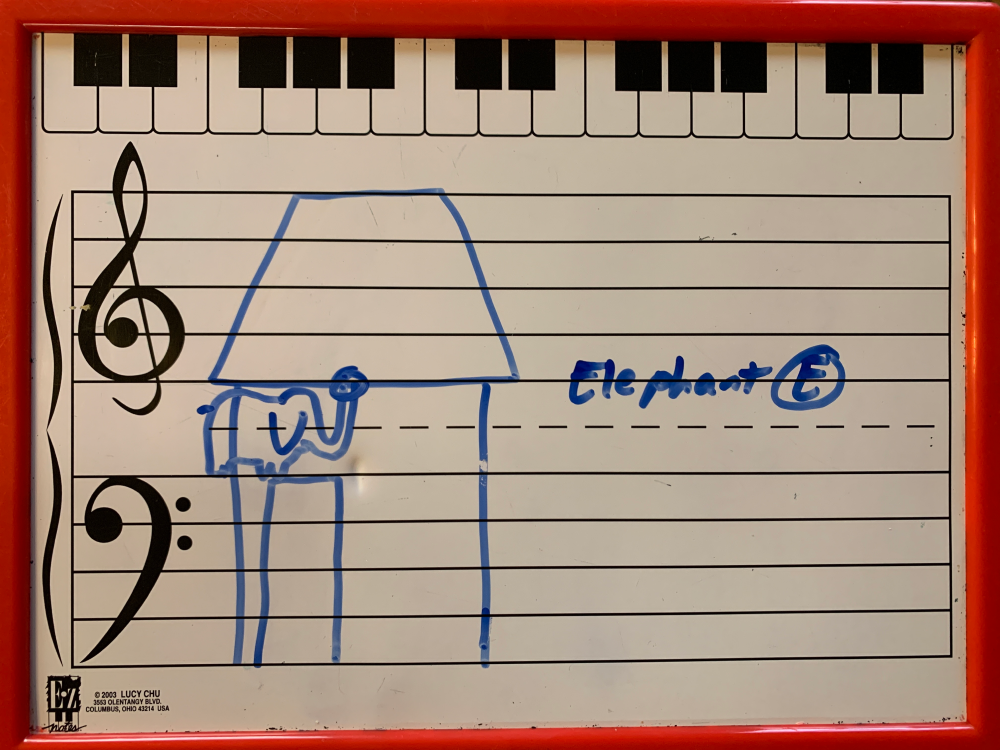 Elephant E
E-Z
Notes
© 2003 LUCY CHU
3553 OLENTANGY BLVD.
COLUMBUS, OHIO 43214 USA